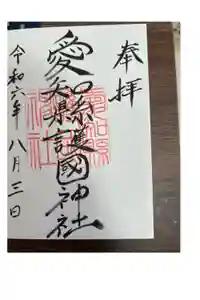 奉拝
愛媛縣護國神社
令和六年八月三日